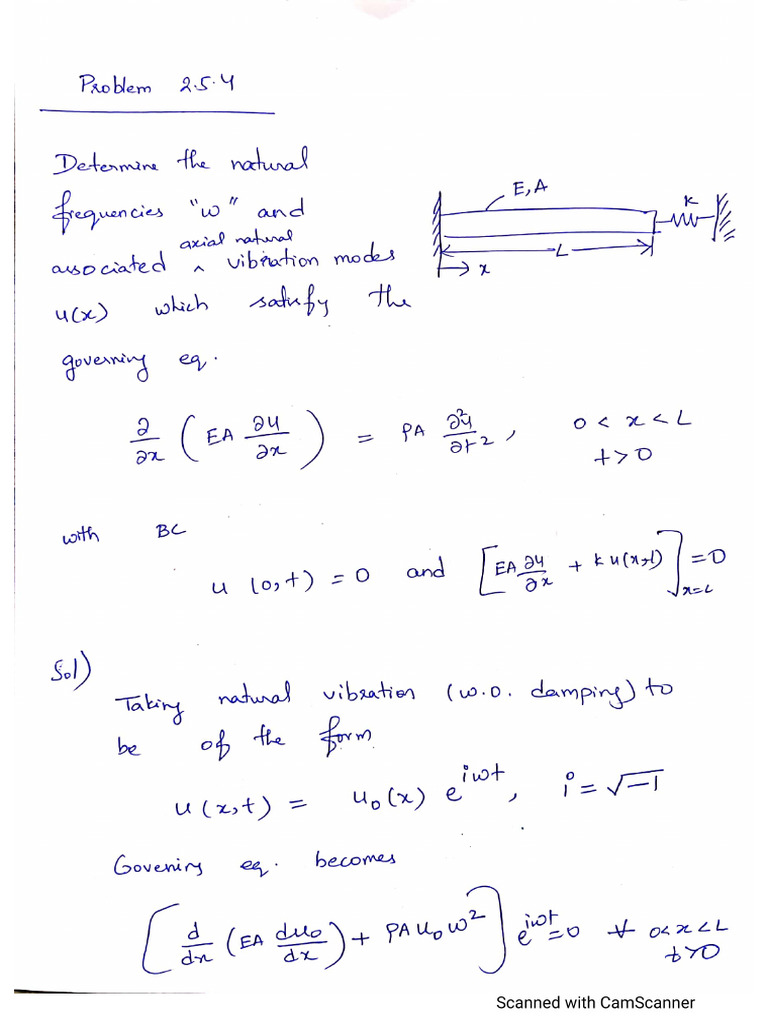 Problem 2.5.4
Determine the natural
frequencies "w" and
axial natural
associated ^ vibration modes
u(x) which satisfy the
governing eq.
E, A
K
L
x
∂/∂x (EA ∂u/∂x) = PA ∂²u/∂t², 0 < x < L
t > 0
with BC
u (0,t) = 0 and [EA ∂u/∂x + k u(x,t)]x=L = 0
Sol)
Taking natural vibration (w.o. damping) to
be of the form
u(x,t) = u₀(x) e^iwt, i = √-1
Govening eq. becomes
[d/dx (EA du₀/dx) + PA u₀ω²] e^iwt = 0 ∀ 0<x<L
t>0
Scanned with CamScanner